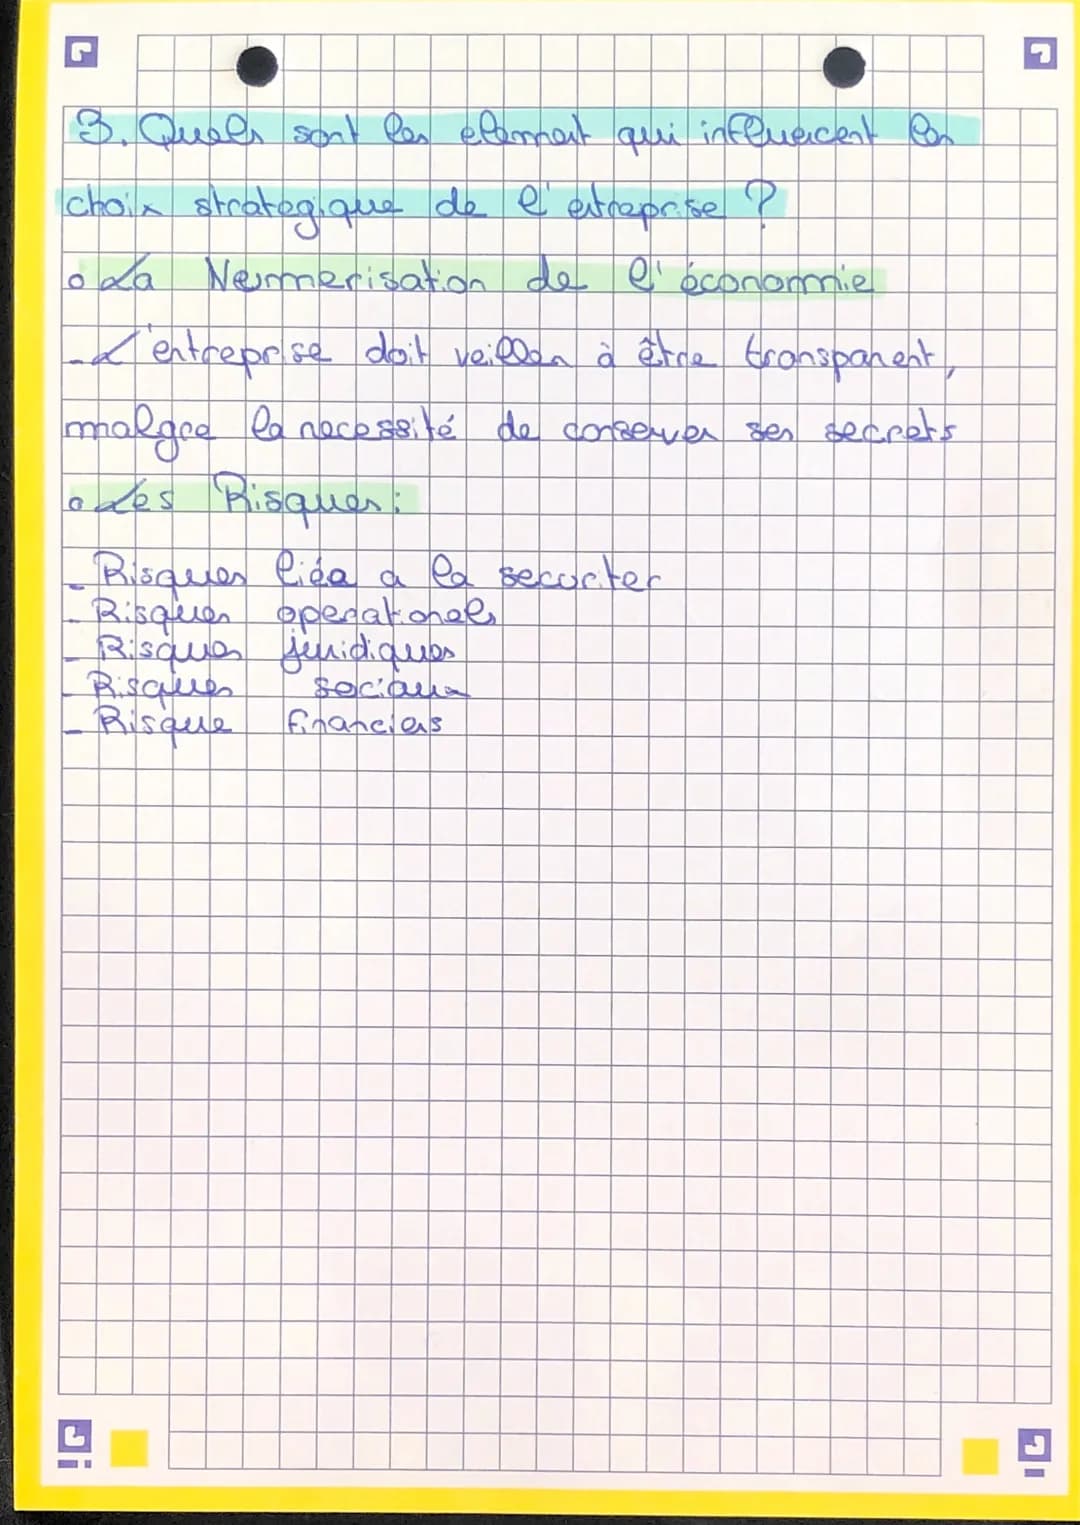 3. Quels sont les element qui influencent les
choix strategique de l'entreprise ?
o La Neumerisation de l'économie
- L'entreprise doit veiller à être transparent,
malgre la necessité de conserver ses secrets
o Les Risques :
- Risques liés a la securiter
- Risques operationels
- Risques juridiques
- Risques sociaux
- Risque financiers